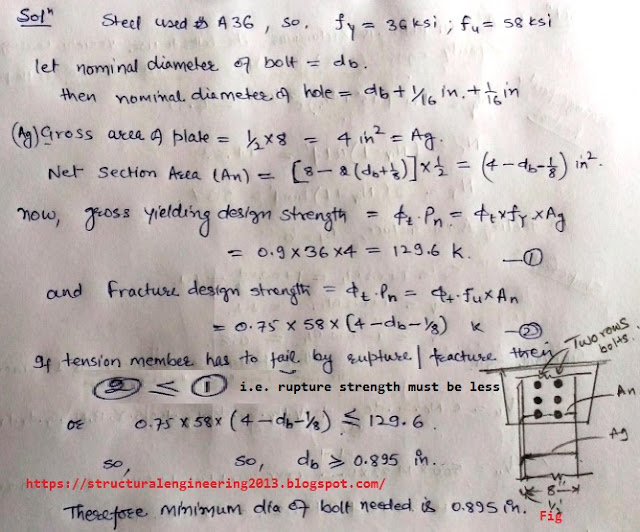 Solⁿ Steel used is A36, so. fy = 36 ksi ; fu = 58 ksi
let nominal diameter of bolt = db.
then nominal diameter of hole = db + 1/16 in. + 1/16 in
(Ag) Gross area of plate = 1/2 x 8 = 4 in² = Ag.
Net Section Area (An) = [8 - 2(db + 1/8)] x 1/2 = (4 - db - 1/8) in².
now, gross yielding design strength = ϕt. Pn = ϕt x fy x Ag
= 0.9 x 36 x 4 = 129.6 K. —①
and fracture design strength = ϕt. Pn = ϕt. fu x An
= 0.75 x 58 x (4 - db - 1/8) K —②
If tension member has to fail by rupture / feacture then
② ≤ ① i.e. rupture strength must be less
or 0.75 x 58 x (4 - db - 1/8) ≤ 129.6.
so, so, db ≥ 0.895 in.
https://structuralengineering2013.blogspot.com/
Therefore minimum dia of bolt needed is 0.895 in.
Two rows
bolts.
An
Ag
8"
1/2
Fig